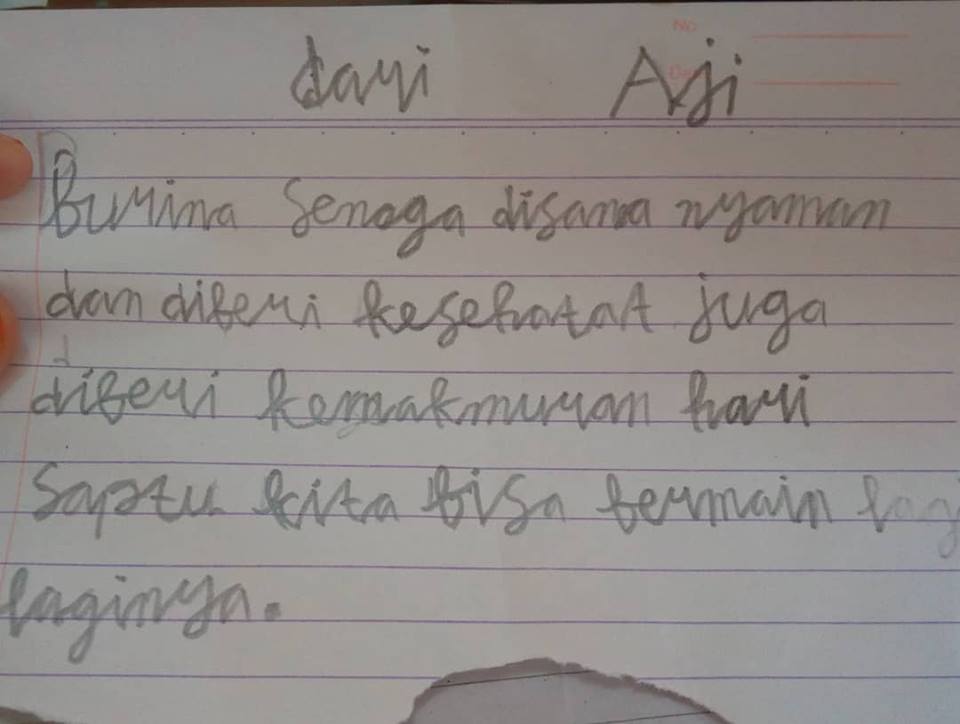 No
dari Aji
Burina Senoga disana nyaman
dan diberi kesehatat juga
diberi kemakmuran hari
Saptu kita bisa bermain lagi
laginya.